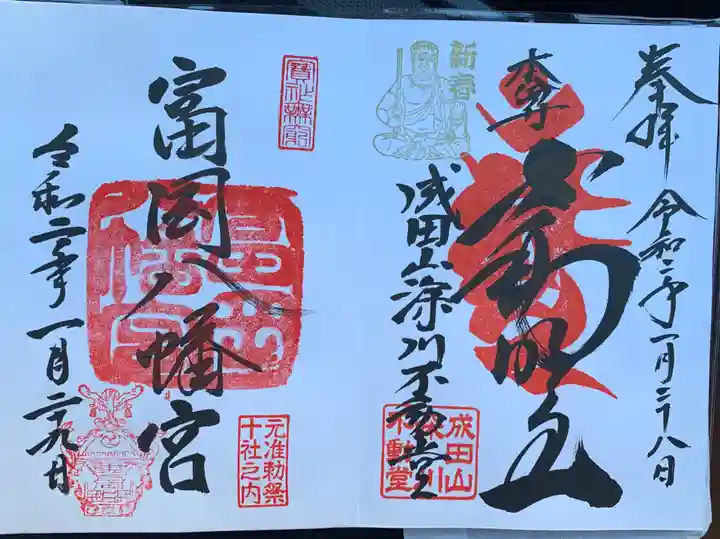 奉拝
令和二年一月二十八日
本尊
不動明王
新春
成田山深川不動堂
成田山
深川
不動堂
富岡八幡宮
令和二年一月二十九日
元准勅祭
十社之内